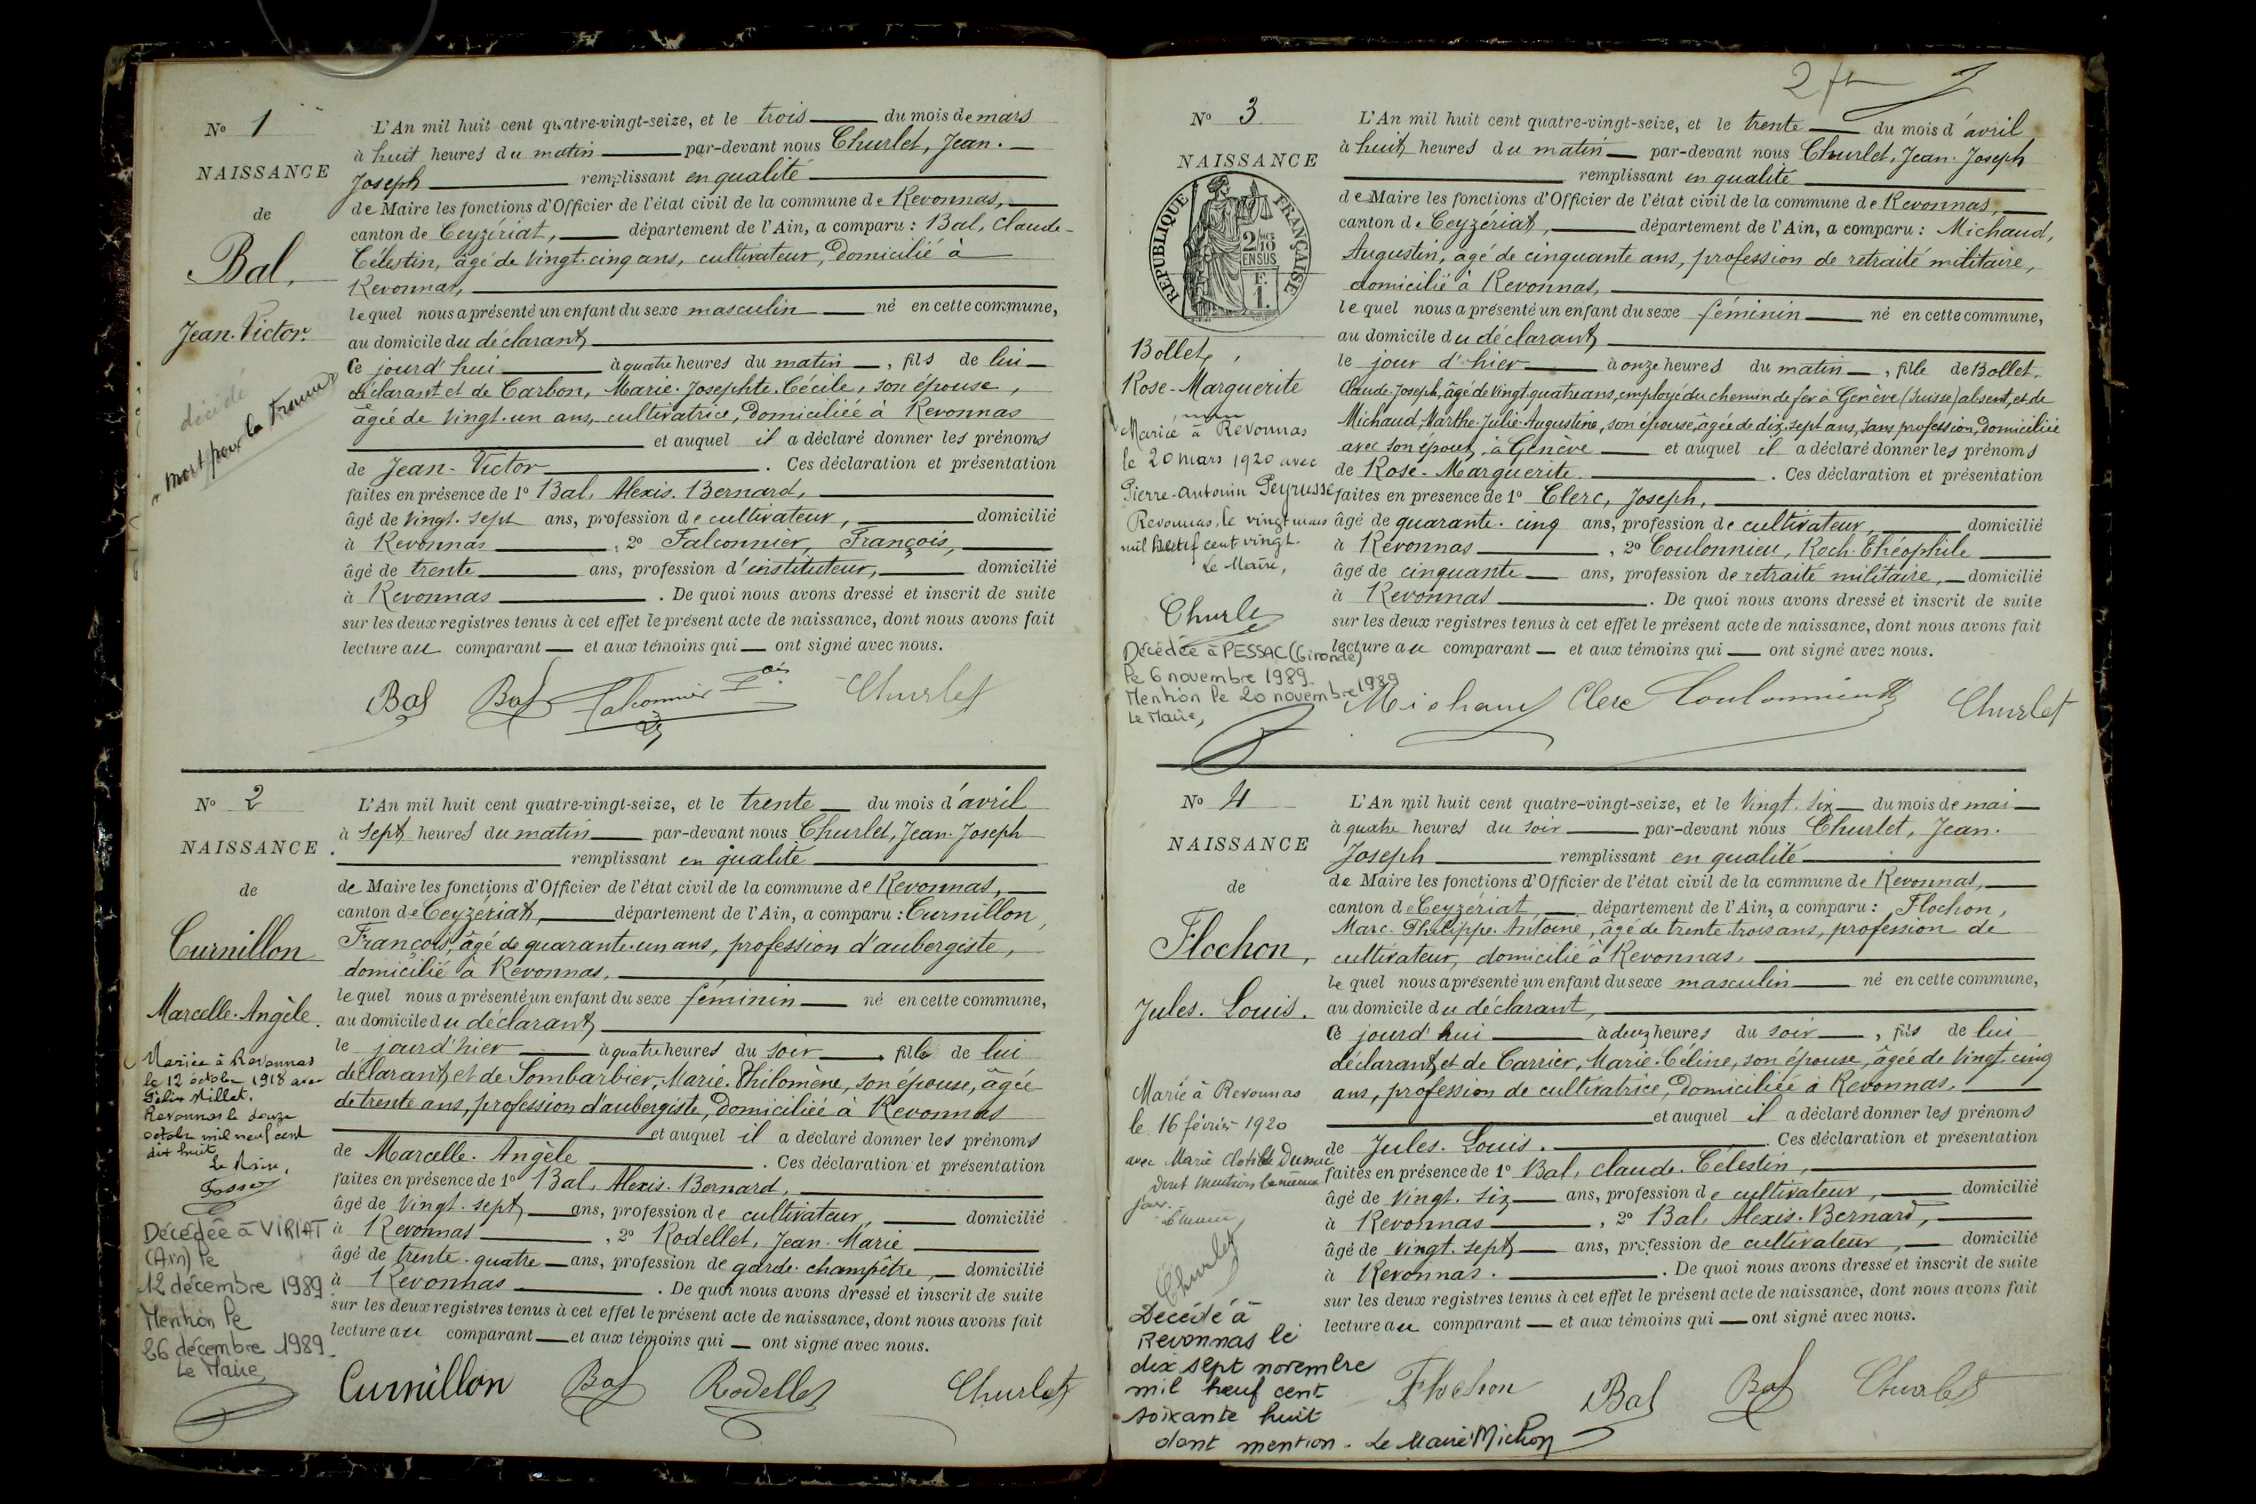 N° 1
NAISSANCE
de
Bal,
Jean-Victor.
décédé
"Mort pour la France"
L'An mil huit cent quatre-vingt-seize, et le trois du mois de mars
à huit heures du matin par-devant nous Churlet, Jean-
Joseph remplissant en qualité
de Maire les fonctions d'Officier de l'état civil de la commune de Revonnas,
canton de Ceyzériat, département de l'Ain, a comparu : Bal, Claude-
Célestin, âgé de vingt-cinq ans, cultivateur, domicilié à
Revonnas,
lequel nous a présenté un enfant du sexe masculin né en cette commune,
au domicile du déclarant
Ce jourd'hui à quatre heures du matin, fils de lui
déclarant et de Carbon, Marie-Josephte-Cécile, son épouse,
âgée de vingt-un ans, cultivatrice, domiciliée à Revonnas
et auquel il a déclaré donner les prénoms
de Jean-Victor. Ces déclaration et présentation
faites en présence de 1° Bal, Alexis-Bernard,
âgé de vingt-sept ans, profession de cultivateur, domicilié
à Revonnas, 2° Falconnier, François,
âgé de trente ans, profession d'instituteur, domicilié
à Revonnas. De quoi nous avons dressé et inscrit de suite
sur les deux registres tenus à cet effet le présent acte de naissance, dont nous avons fait
lecture au comparant et aux témoins qui ont signé avec nous.
Bal Bal Falconnier Fois Churlet
N° 2
NAISSANCE
de
Curnillon
Marcelle-Angèle.
Mariée à Revonnas
le 12 octobre 1918 avec
Félix Millet.
Revonnas le douze
octobre mil neuf cent
dix huit
Le Maire,
Décédée à VIRIAT
(Ain) le
12 décembre 1989
Mention le
26 décembre 1989.
Le Maire,
L'An mil huit cent quatre-vingt-seize, et le trente du mois d'avril
à sept heures du matin par-devant nous Churlet, Jean-Joseph
remplissant en qualité
de Maire les fonctions d'Officier de l'état civil de la commune de Revonnas,
canton de Ceyzériat, département de l'Ain, a comparu : Curnillon,
François, âgé de quarante-un ans, profession d'aubergiste,
domicilié à Revonnas,
lequel nous a présenté un enfant du sexe féminin né en cette commune,
au domicile du déclarant
le jour d'hier à quatre heures du soir, fille de lui
déclarant, et de Sombarbier, Marie-Philomène, son épouse, âgée
de trente ans, profession d'aubergiste, domiciliée à Revonnas
et auquel il a déclaré donner les prénoms
de Marcelle-Angèle. Ces déclaration et présentation
faites en présence de 1° Bal, Alexis-Bernard,
âgé de vingt-sept ans, profession de cultivateur, domicilié
à Revonnas, 2° Rodellet, Jean-Marie
âgé de trente-quatre ans, profession de garde-champêtre, domicilié
à Revonnas. De quoi nous avons dressé et inscrit de suite
sur les deux registres tenus à cet effet le présent acte de naissance, dont nous avons fait
lecture au comparant et aux témoins qui ont signé avec nous.
Curnillon Bal Rodellet Churlet
N° 3
NAISSANCE
RÉPUBLIQUE FRANÇAISE
2/10 EN SUS
F. 1.
Bollet,
Rose-Marguerite
Mariée à Revonnas
le 20 mars 1920 avec
Pierre-Antonin Peyrusse
Revonnas, le vingt mars
mil neuf cent vingt.
Le Maire,
Churlet
Décédée à PESSAC (Gironde)
le 6 novembre 1989.
Mention le 20 novembre 1989
Le Maire,
L'An mil huit cent quatre-vingt-seize, et le trente du mois d'avril
à huit heures du matin par-devant nous Churlet, Jean-Joseph
remplissant en qualité
de Maire les fonctions d'Officier de l'état civil de la commune de Revonnas,
canton de Ceyzériat, département de l'Ain, a comparu : Michaud,
Augustin, âgé de cinquante ans, profession de retraité militaire,
domicilié à Revonnas,
lequel nous a présenté un enfant du sexe féminin né en cette commune,
au domicile du déclarant
le jour d'hier à onze heures du matin, fille de Bollet,
Claude-Joseph, âgé de vingt-quatre ans, employé du chemin de fer à Genève (Suisse) absent, et de
Michaud, Marthe-Julie-Augustine, son épouse, âgée de dix-sept ans, sans profession, domiciliée
avec son époux, à Genève et auquel il a déclaré donner les prénoms
de Rose-Marguerite. Ces déclaration et présentation
faites en présence de 1° Clerc, Joseph,
âgé de quarante-cinq ans, profession de cultivateur, domicilié
à Revonnas, 2° Coulonnieu, Roch-Théophile
âgé de cinquante ans, profession de retraité militaire, domicilié
à Revonnas. De quoi nous avons dressé et inscrit de suite
sur les deux registres tenus à cet effet le présent acte de naissance, dont nous avons fait
lecture au comparant et aux témoins qui ont signé avec nous.
Michaud Clerc Coulonnieu Churlet
N° 4
NAISSANCE
de
Flochon,
Jules-Louis.
Marié à Revonnas
le 16 février 1920
avec Marie Clotilde
Dont mention le même
jour.
Le Maire,
Churlet
Décédé à
Revonnas le
dix sept novembre
mil neuf cent
soixante huit
dont mention. Le Maire Michon
L'An mil huit cent quatre-vingt-seize, et le vingt-six du mois de mai
à quatre heures du soir par-devant nous Churlet, Jean-
Joseph remplissant en qualité
de Maire les fonctions d'Officier de l'état civil de la commune de Revonnas,
canton de Ceyzériat, département de l'Ain, a comparu : Flochon,
Marc-Philippe-Antoine, âgé de trente-trois ans, profession de
cultivateur, domicilié à Revonnas,
lequel nous a présenté un enfant du sexe masculin né en cette commune,
au domicile du déclarant,
Ce jourd'hui à deux heures du soir, fils de lui
déclarant, et de Carrier, Marie-Céline, son épouse, âgée de vingt-cinq
ans, profession de cultivatrice, domiciliée à Revonnas,
et auquel il a déclaré donner les prénoms
de Jules-Louis. Ces déclaration et présentation
faites en présence de 1° Bal, Claude-Célestin,
âgé de vingt-six ans, profession de cultivateur, domicilié
à Revonnas, 2° Bal, Alexis-Bernard,
âgé de vingt-sept ans, profession de cultivateur, domicilié
à Revonnas. De quoi nous avons dressé et inscrit de suite
sur les deux registres tenus à cet effet le présent acte de naissance, dont nous avons fait
lecture au comparant et aux témoins qui ont signé avec nous.
Flochon Bal Bal Churlet